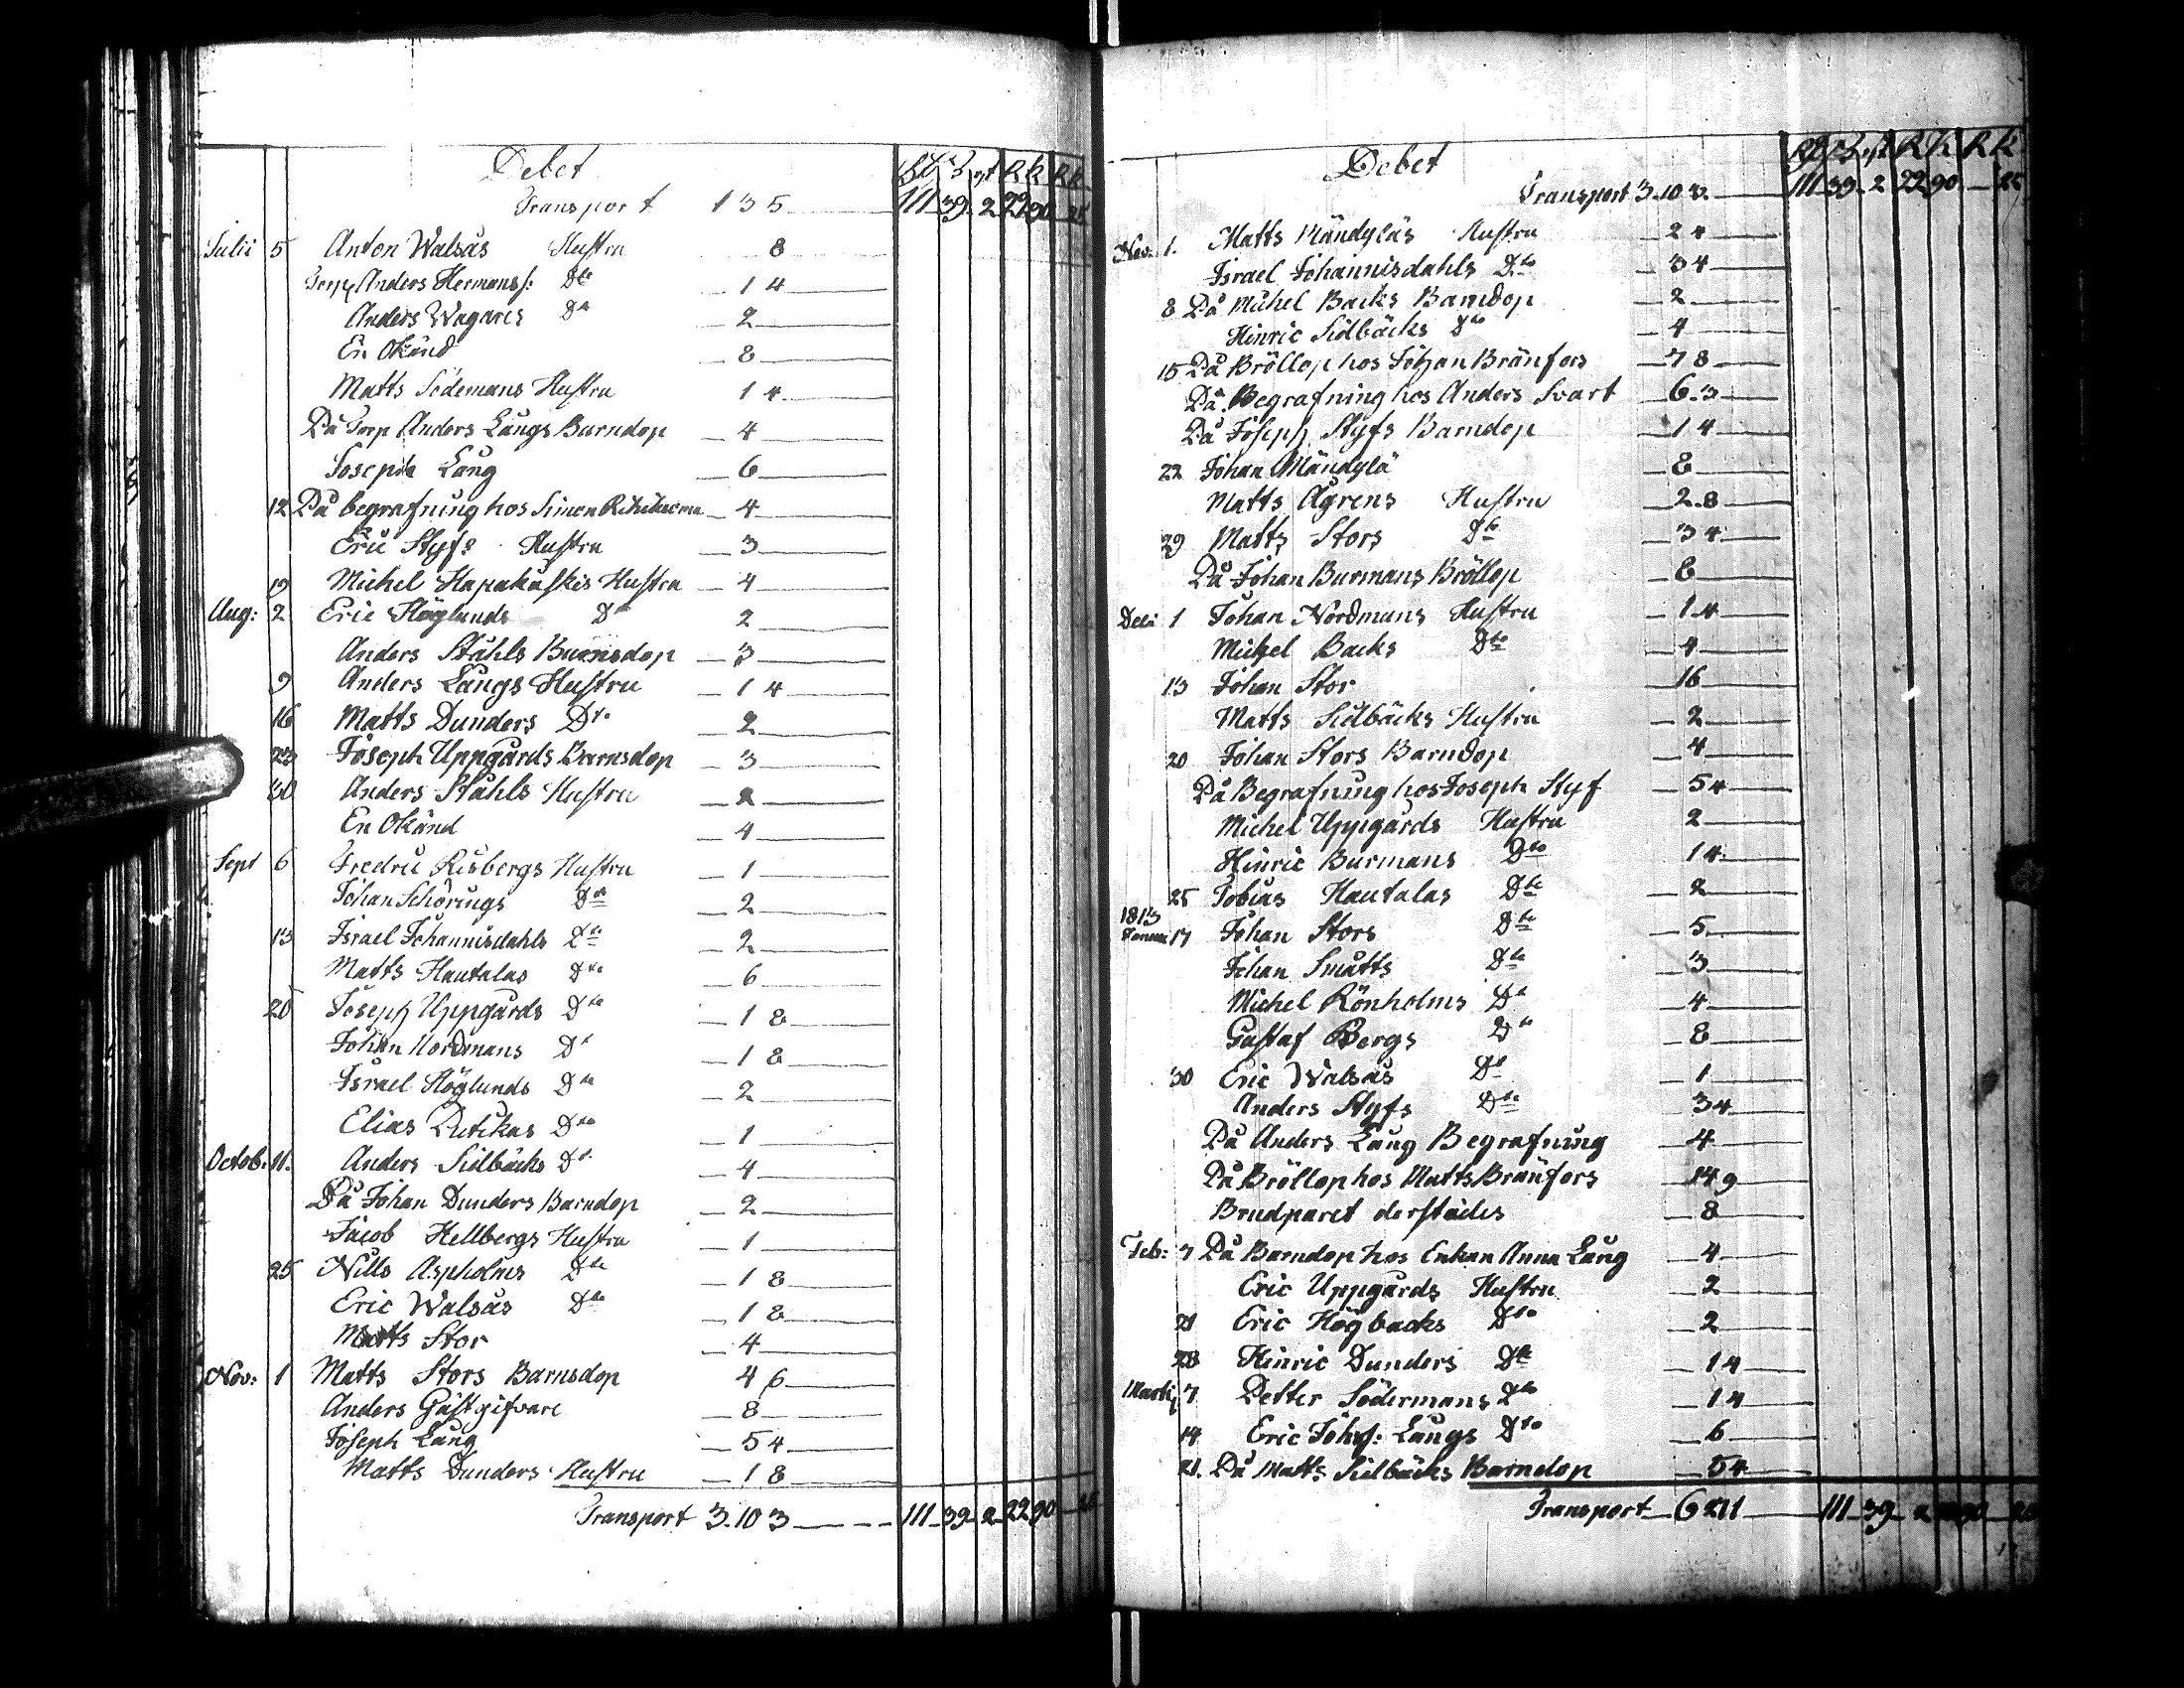 Debet
Transport 135 111 39 2 22 90 25
Julii 5 Anton Walsås Hustru 8
Torp Anders Hermans f: Dto 14
Anders Wagares Dto 2
En Okänd 8
Matts Södemans Hustru 14
På Torp Anders Långs Barndop 4
Joseph Lång 6
12 På begrafning hos Simon 4
Eric Styfs Hustru 3
19 Michel Hapakåskis Hustru 4
Aug: 2 Eric Höglunds Dto 2
Anders Ståhls Barnsdop 3
9 Anders Långs Hustru 14
16 Matts Dunders Dto 2
23 Joseph Uppgårds Barnsdop 3
30 Anders Ståhls Hustru 2
En Okänd 4
Sept 6 Fredric Risbergs Hustru 1
Johan Schörings Dto 2
13 Israel Johannisdahls Dto 2
Matts Hautalas Dto 6
20 Joseph Uppgårds Dto 18
Johan Nordmans Dto 18
Israel Höglunds Dto 2
Elias Dto 1
Octob. 11. Anders Sidbäcks Dto 4
På Johan Dunders Barndop 2
Jacob Hellbergs Hustru 1
25 Nills Aspholms Dto 18
Eric Walsås Dto 18
Matts Stor 4
Nov: 1 Matts Stors Barnsdop 46
Anders Gästgifvare 8
Joseph Lång 54
Matts Dunders Hustru 18
Transport 3.10 3 111 39 2 22 90 25
Debet
Transport 3.10 3. 111 39 2 22 90 25
Nov: 1. Matts Mändyläs Hustru 24
Israel Johannisdahls Dto 34
8 På Michel Backs Barndop 2
Hinric Sidbäcks Dto 4
15 På Bröllop hos Johan Bränfors 78
På Begrafning hos Anders Svart 6.3
På Joseph Styfs Barndop 14
22 Johan Mändylä 8
Matts Ågrens Hustru 2.8
29 Matts Stors Dto 34
På Johan Burmans Bröllop 8
Dec: 1 Johan Nordmans Hustru 14
Michel Backs Dto 4
13 Johan Stor 16
Matts Sidbäcks Hustru 2
20 Johan Stors Barndop 4
På Begrafning hos Joseph Styf 54
Michel Uppgårds Hustru 2
Hinric Burmans Dto 14
25 Tobias Hautalas Dto 2
1813
Januar 17 Johan Stors Dto 5
Johan Smatts Dto 3
Michel Rönholms Dto 4
Gustaf Bergs Dto 8
30 Eric Walsås Dto 1
Anders Styfs Dto 34
På Anders Lång Begrafning 4
På Bröllop hos Matts Bränfors 149
Brudparet derstädes 8
Feb: 7 På Barndop hos Enkan Anna Lång 4
Eric Uppgårds Hustru 2
21 Eric Högbacks Dto 2
28 Hinric Dunders Dto 14
Martij 7 Petter Södermans Dto 14
14 Eric Johs: Långs Dto 6
21. På Matts Sidbäcks Barndop 54
Transport 6 211 111 39 2 22 90 25